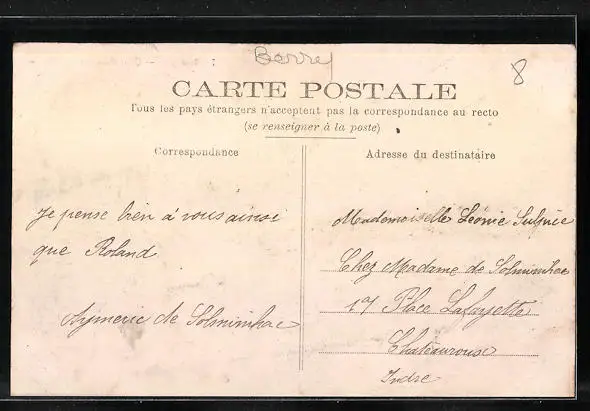 Barre
8
CARTE POSTALE
Tous les pays étrangers n'acceptent pas la correspondance au recto
(se renseigner à la poste)
Correspondance
Adresse du destinataire
Je pense bien à vous ainsi
que Roland
Aymeric de Solminihac
Mademoiselle Léonie Sulpice
Chez Madame de Solminihac
17 Place Lafayette
Châteauroux
Indre